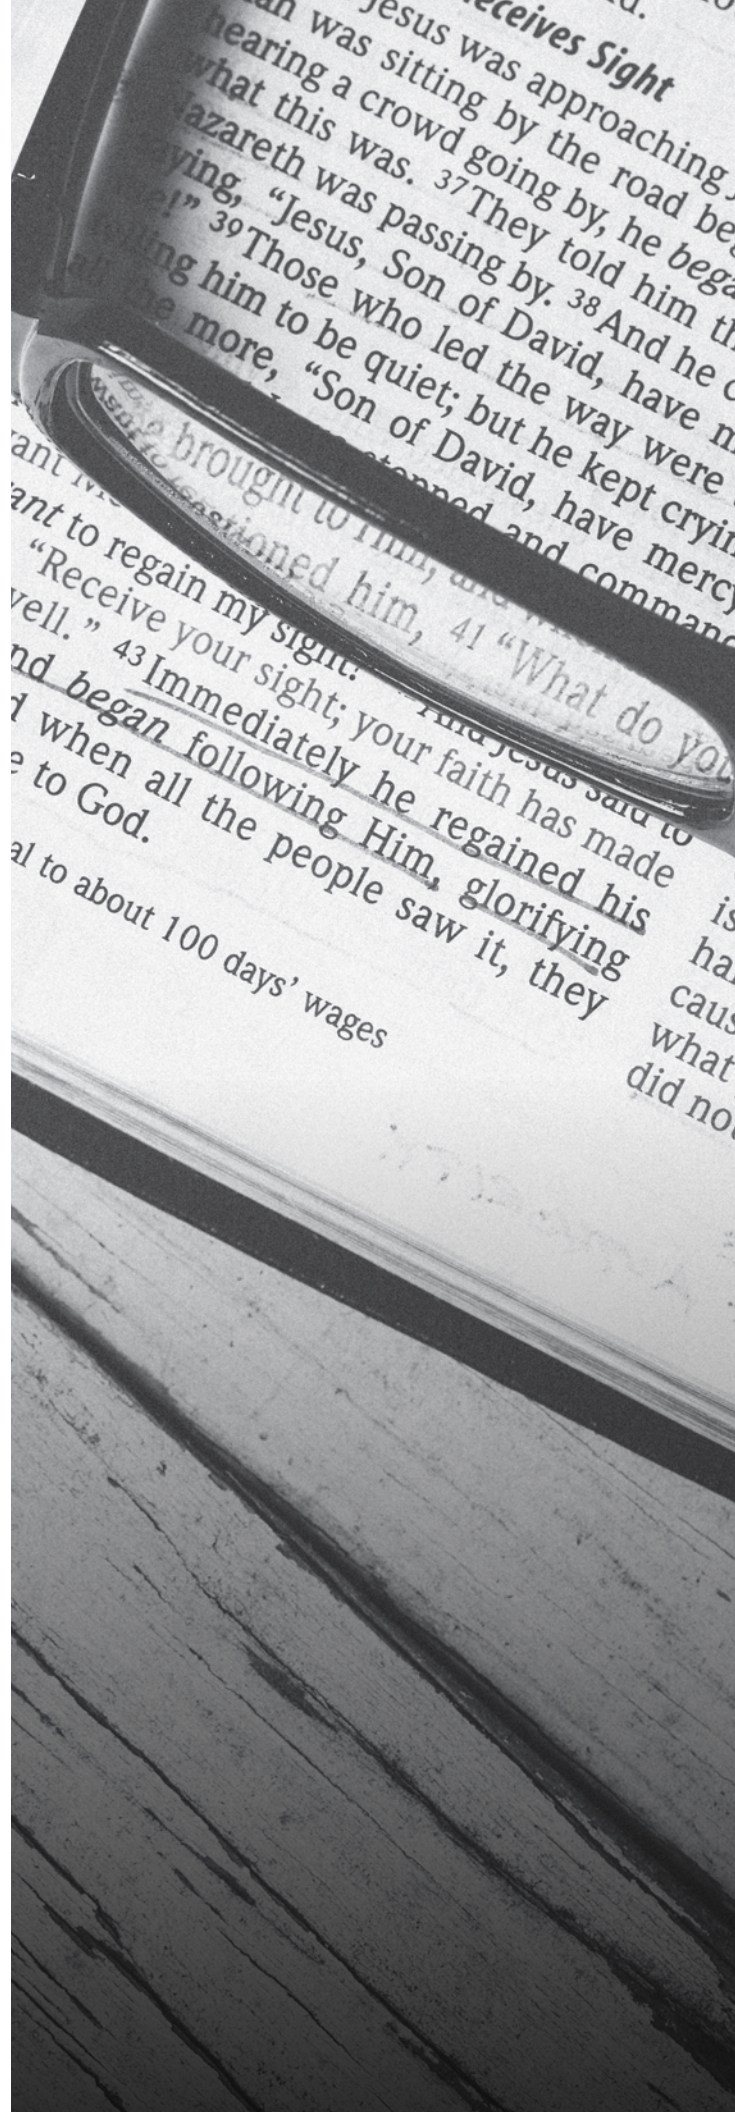 eceives Sight
Jesus was approaching
an was sitting by the road beg
hearing a crowd going by, he bega
what this was. 37They told him th
Nazareth was passing by. 38And he c
aying, “Jesus, Son of David, have m
e!” 39Those who led the way were
telling him to be quiet; but he kept cryin
all the more, “Son of David, have mercy
stopped and command
brought to Him, and
questioned him, 41 “What do you
ant
ant to regain my sight! And Jesus said to
“Receive your sight; your faith has made
vell.” 43Immediately he regained his
nd began following Him, glorifying
d when all the people saw it, they
e to God.
al to about 100 days’ wages
is
ha
caus
what
did not